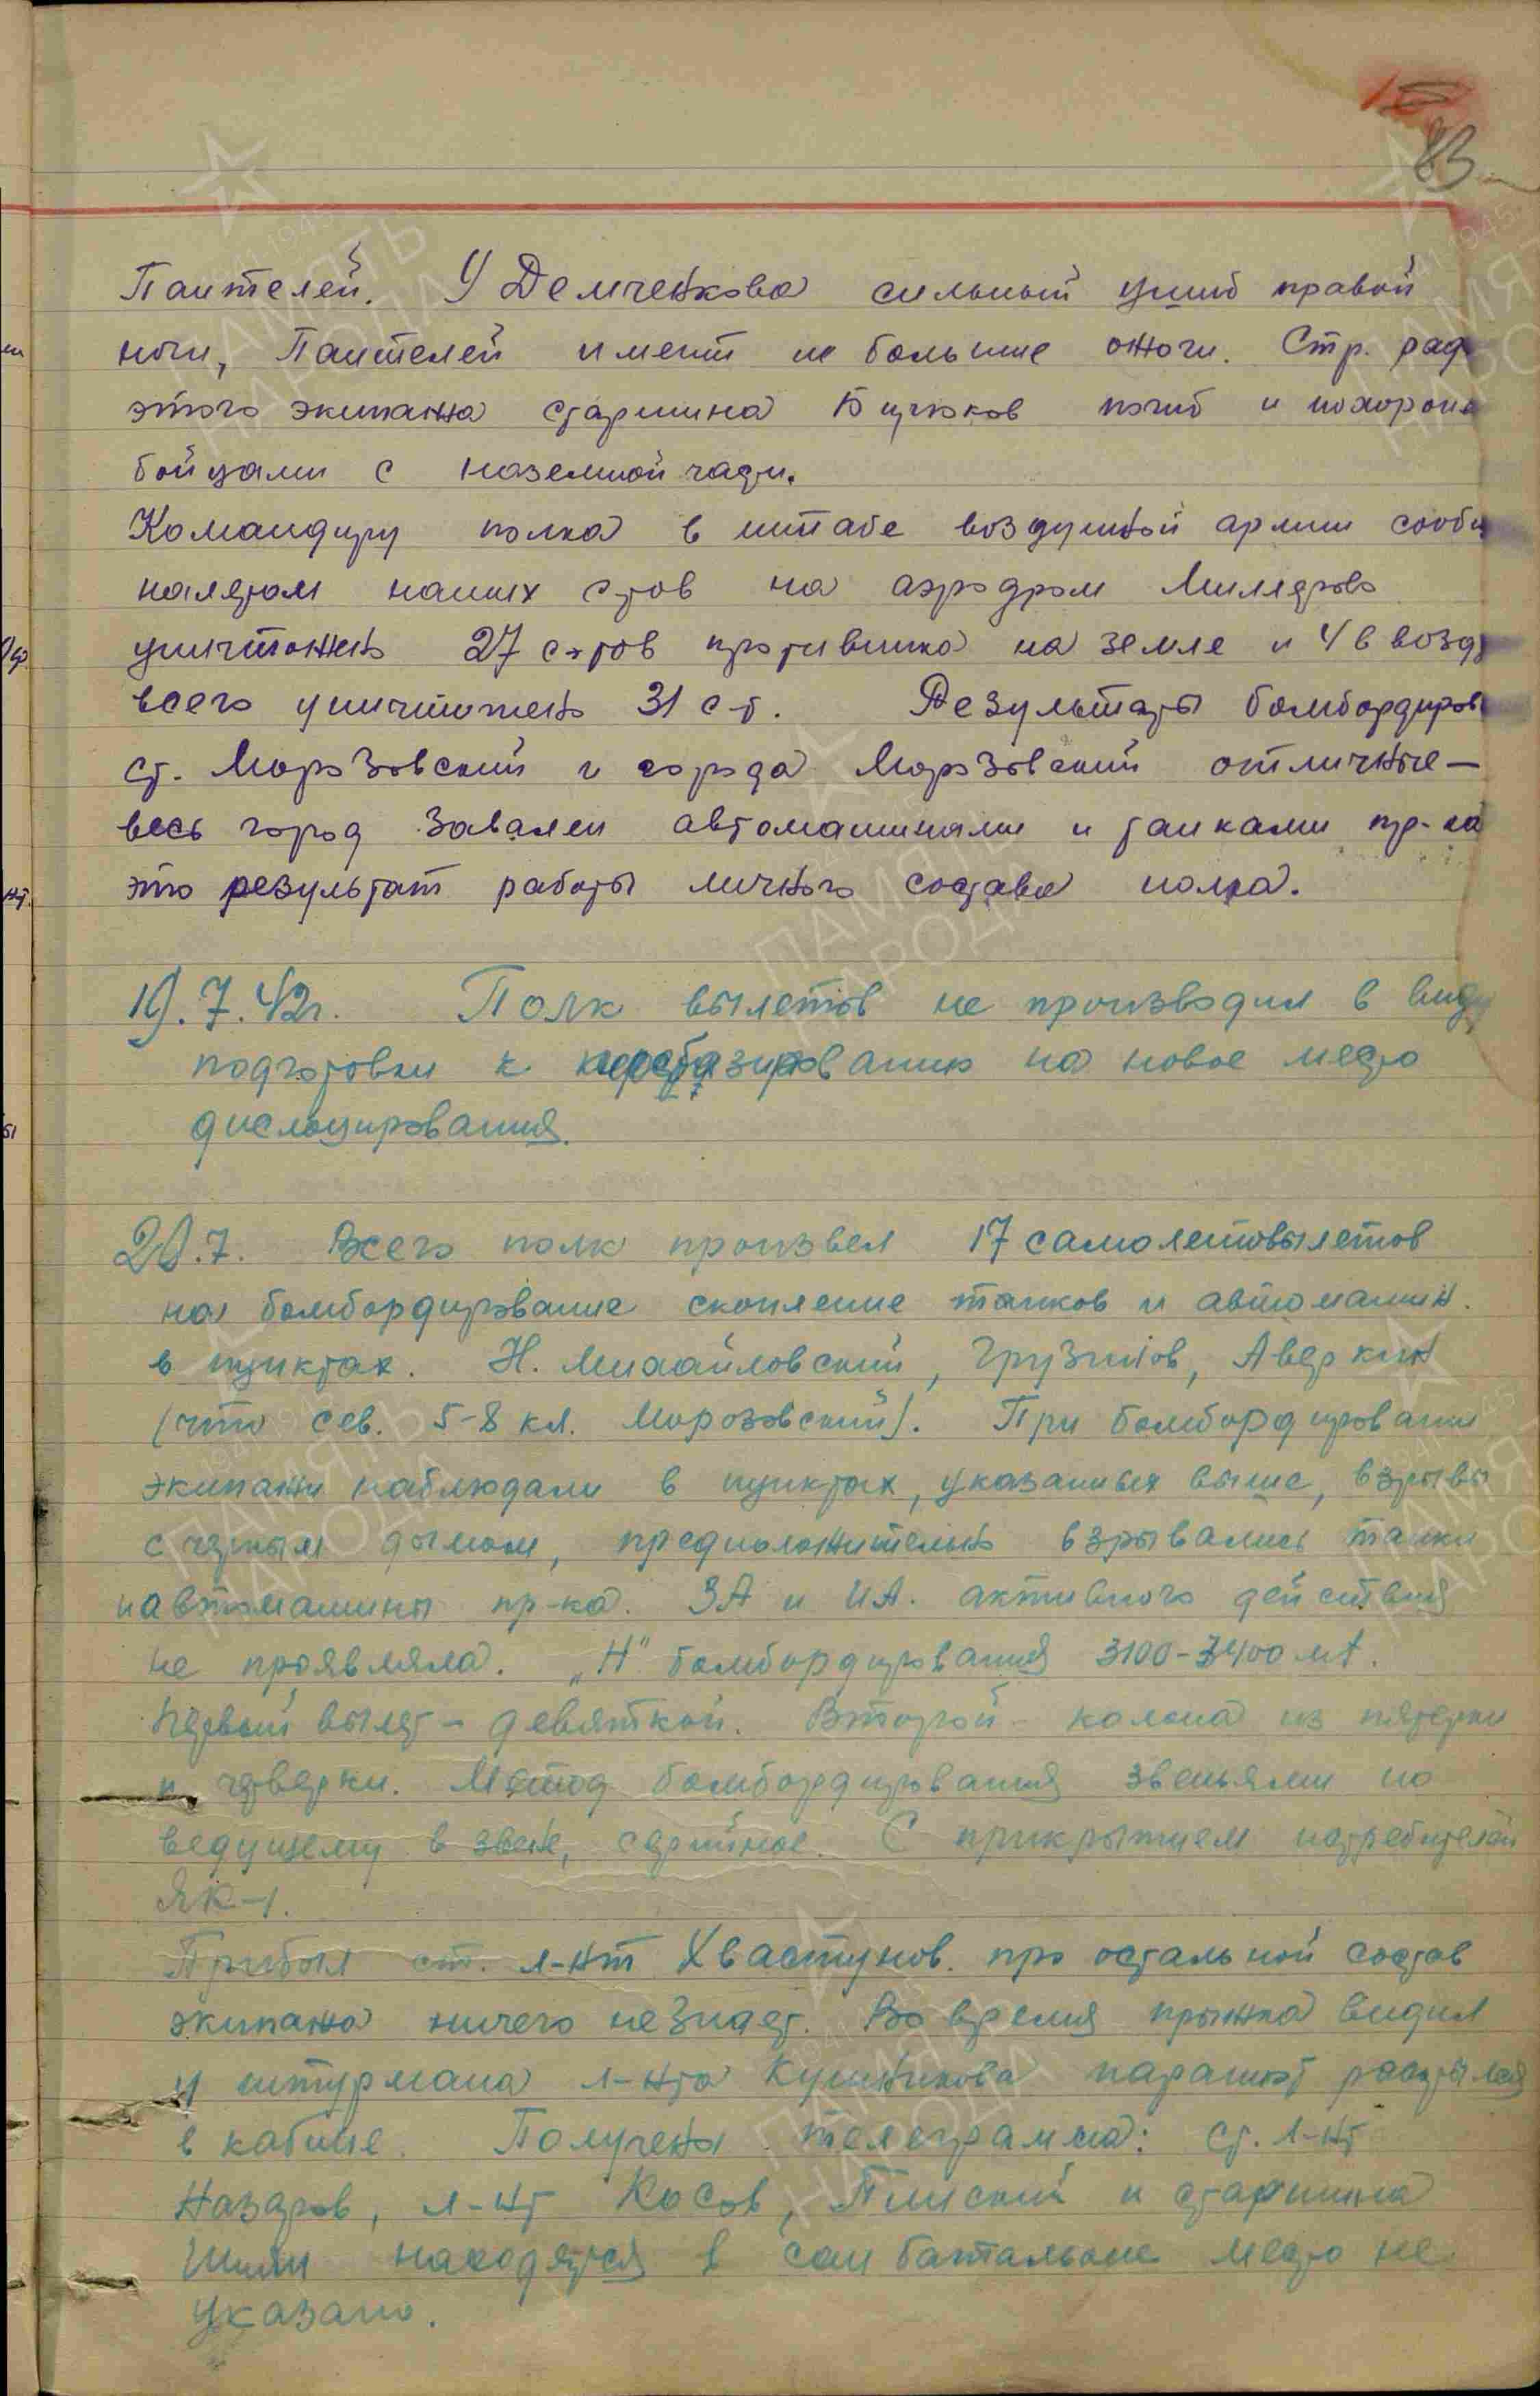 83
Пантелей. У Демченкова сильный ушиб правой
ноги, Пантелей имеет не большие ожоги. Стр. рад
этого экипажа старшина погиб и похорон
бойцами с наземной части.
Командиру полка в штабе воздушной армии сооб
налетом наших с-тов на аэродром Миллерово
уничтожено 27 с-тов противника на земле и 4 в возд
всего уничтожено 31 с-т. Результаты бомбардиров
ст. Морозовский и города Морозовский отличные —
весь город завален автомашинами и танками пр-ка
это результат работы личного состава полка.
19.7.42г. Полк вылетов не производил в виду
подготовки к перебазированию на новое место
дислоцирования.
20.7. Всего полк произвел 17 самолетовылетов
на бомбардирование скопление танков и автомашин.
в пунктах. Н. Михайловский, Грузинов, Аверкин
(что сев. 5-8 км. Морозовский). При бомбардировании
экипажи наблюдали в пунктах, указанных выше, взрывы
с черным дымом, предположительно взрывались танки
и автомашины пр-ка. ЗА и ИА. активного действия
не проявляла. „Н" бомбардирования 3100-3400 мт.
Первый вылет - девяткой. Второй - колона из пятерки
и четверки. Метод бомбардирования звеньями по
ведущему в звене, серийное. С прикрытием истребителей
ЯК-1.
Прибыл ст. л-нт Хвастунов. про остальной состав
экипажа ничего не знает. Во время прыжка видил
у штурмана л-нта парашют раскрылся
в кабине. Получена телеграмма: ст. л-нт
Назаров, л-нт Косов, и старшина
находятся в сан батальоне место не
указано.